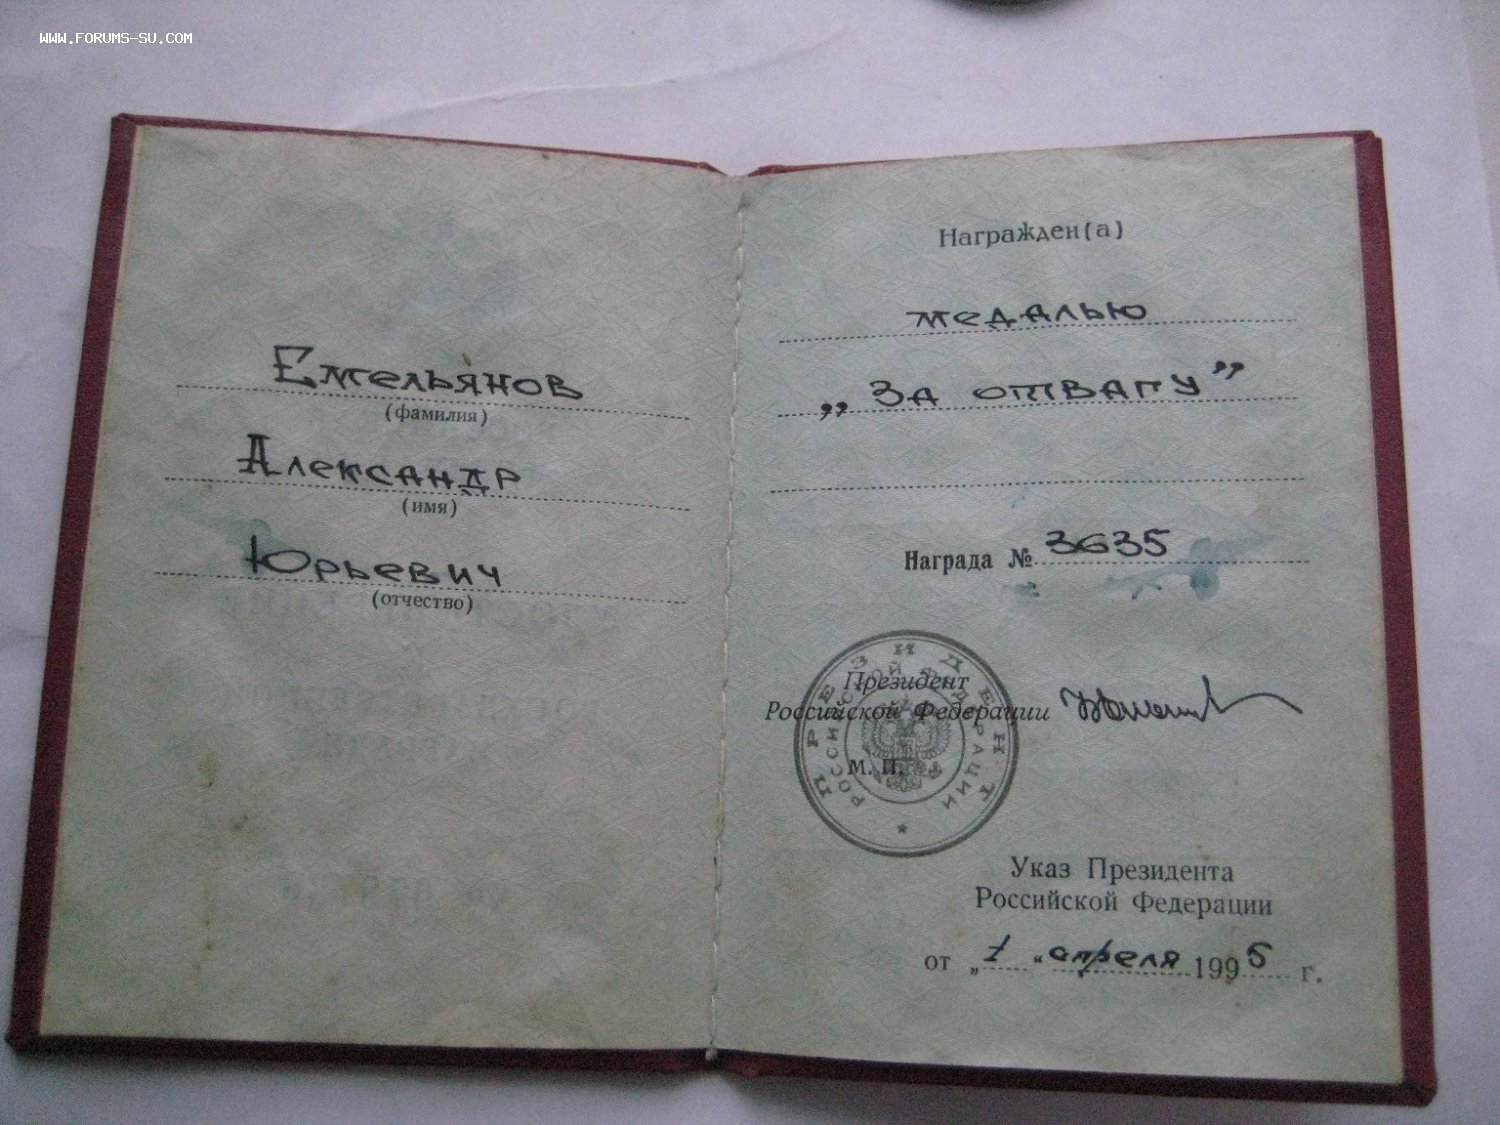 WWW.FORUMS-SU.COM
Емельянов
(фамилия)
Александр
(имя)
Юрьевич
(отчество)
Награжден(а)
медалью
„За отвагу”
Награда № 3635
ПРЕЗИДЕНТ
РОССИЙСКОЙ ФЕДЕРАЦИИ
Президент
Российской Федерации
М. П.
Указ Президента
Российской Федерации
от „1“ апреля 1995 г.